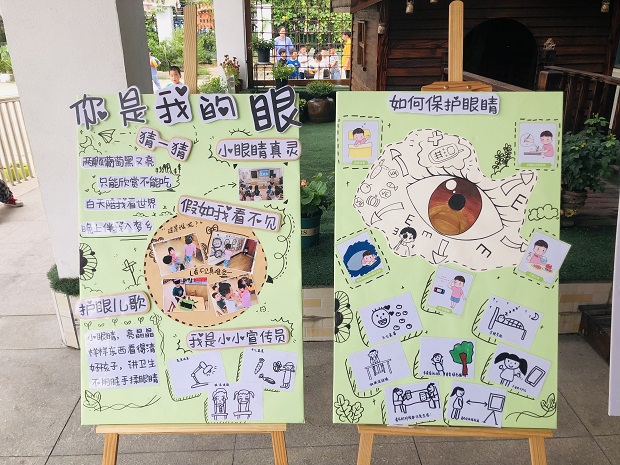 你是我的眼
猜一猜
两颗葡萄黑又亮
只能欣赏不能吃
白天陪我看世界
晚上伴我入梦乡
小眼睛真灵
假如我看不见
护眼儿歌
小眼睛，亮晶晶
样样东西看得清
好孩子，讲卫生
不用脏手揉眼睛
我是小小宣传员
如何保护眼睛
E
E
E
E